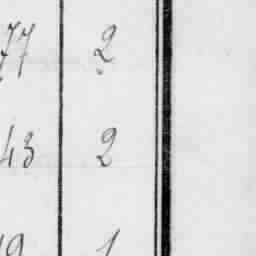 77 2
43 2
19 1